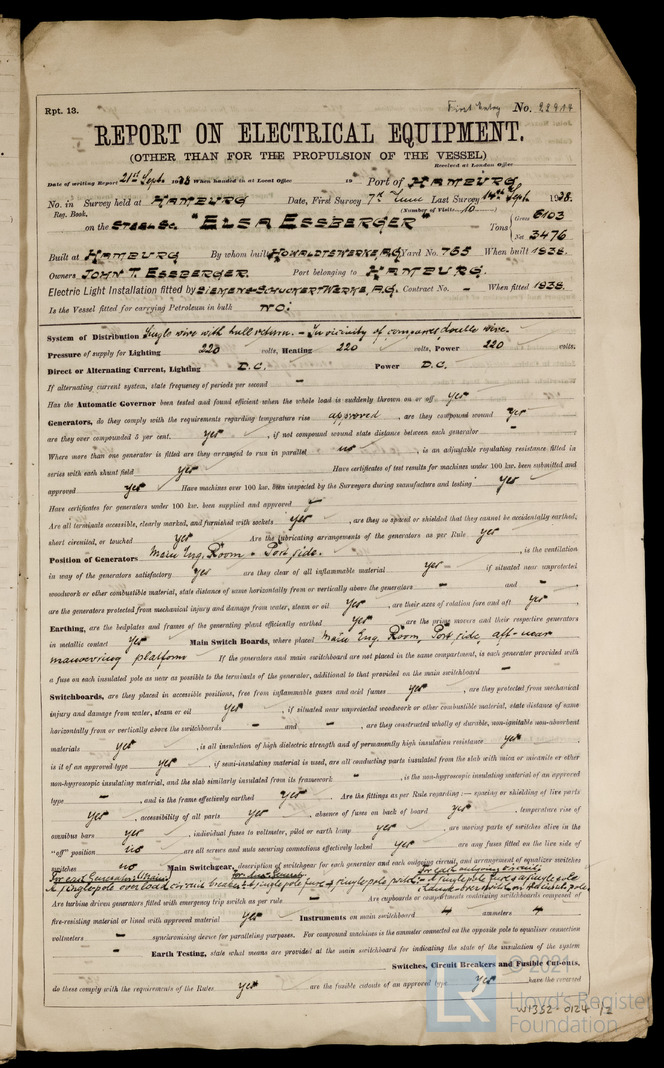 Rpt. 13.
First Entry No. 22914
REPORT ON ELECTRICAL EQUIPMENT.
(OTHER THAN FOR THE PROPULSION OF THE VESSEL)
Received at London Office
Date of writing Report 21st Sept. 1938 When handed in at Local Office 19 Port of HAMBURG
No. in Survey held at HAMBURG Date, First Survey 7th June Last Survey 14th Sept. 1938.
Reg. Book. (Number of Visits 10)
on the STEEL SC. "ELSA ESSBERGER" Tons { Gross 6103
Net 3476
Built at HAMBURG By whom built HOWALDTSWERKE, A.G. Yard No. 755 When built 1938.
Owners JOHN T. ESSBERGER. Port belonging to HAMBURG.
Electric Light Installation fitted by SIEMENS-SCHUCKERTWERKE, A.G. Contract No. - When fitted 1938.
Is the Vessel fitted for carrying Petroleum in bulk NO.
System of Distribution Single wire with hull return. - In vicinity of compasses double wire.
Pressure of supply for Lighting 220 volts, Heating 220 volts, Power 220 volts.
Direct or Alternating Current, Lighting D.C. Power D.C.
If alternating current system, state frequency of periods per second -
Has the Automatic Governor been tested and found efficient when the whole load is suddenly thrown on or off yes
Generators, do they comply with the requirements regarding temperature rise approved, are they compound wound yes
are they over compounded 5 per cent. yes, if not compound wound state distance between each generator -
Where more than one generator is fitted are they arranged to run in parallel no, is an adjustable regulating resistance fitted in
series with each shunt field yes Have certificates of test results for machines under 100 kw. been submitted and
approved yes Have machines over 100 kw. been inspected by the Surveyors during manufacture and testing yes
Have certificates for generators under 100 kw. been supplied and approved
Are all terminals accessible, clearly marked, and furnished with sockets yes, are they so spaced or shielded that they cannot be accidentally earthed,
short circuited, or touched yes Are the lubricating arrangements of the generators as per Rule yes
Position of Generators Main Eng. Room - Port side., is the ventilation
in way of the generators satisfactory yes are they clear of all inflammable material yes if situated near unprotected
woodwork or other combustible material, state distance of same horizontally from or vertically above the generators - and -
are the generators protected from mechanical injury and damage from water, steam or oil yes, are their axes of rotation fore and aft yes
Earthing, are the bedplates and frames of the generating plant efficiently earthed yes are the prime movers and their respective generators
in metallic contact yes Main Switch Boards, where placed Main Eng. Room, Port side, aft - near
manoevring platform If the generators and main switchboard are not placed in the same compartment, is each generator provided with
a fuse on each insulated pole as near as possible to the terminals of the generator, additional to that provided on the main switchboard -
Switchboards, are they placed in accessible positions, free from inflammable gases and acid fumes yes, are they protected from mechanical
injury and damage from water, steam or oil yes, if situated near unprotected woodwork or other combustible material, state distance of same
horizontally from or vertically above the switchboards - and -, are they constructed wholly of durable, non-ignitable non-absorbent
materials yes, is all insulation of high dielectric strength and of permanently high insulation resistance yes,
is it of an approved type yes, if semi-insulating material is used, are all conducting parts insulated from the slab with mica or micanite or other
non-hygroscopic insulating material, and the slab similarly insulated from its framework -, is the non-hygroscopic insulating material of an approved
type -, and is the frame effectively earthed yes. Are the fittings as per Rule regarding:— spacing or shielding of live parts
yes, accessibility of all parts yes, absence of fuses on back of board yes, temperature rise of
omnibus bars yes, individual fuses to voltmeter, pilot or earth lamp yes, are moving parts of switches alive in the
"off" position no are all screws and nuts securing connections effectively locked yes are any fuses fitted on the live side of
switches no Main Switchgear, description of switchgear for each generator and each outgoing circuit, and arrangement of equalizer switches
Are turbine driven generators fitted with emergency trip switch as per rule - Are cupboards or compartments containing switchboards composed of
fire-resisting material or lined with approved material yes Instruments on main switchboard 4 ammeters 4
voltmeters - synchronising device for paralleling purposes. For compound machines is the ammeter connected on the opposite pole to equaliser connection
- Earth Testing, state what means are provided at the main switchboard for indicating the state of the insulation of the system
Switches, Circuit Breakers and Fusible Cut-outs,
do these comply with the requirements of the Rules yes are the fusible cutouts of an approved type yes have the covered
© 2021
Lloyd's Register
Foundation
W1352-0124 1/2